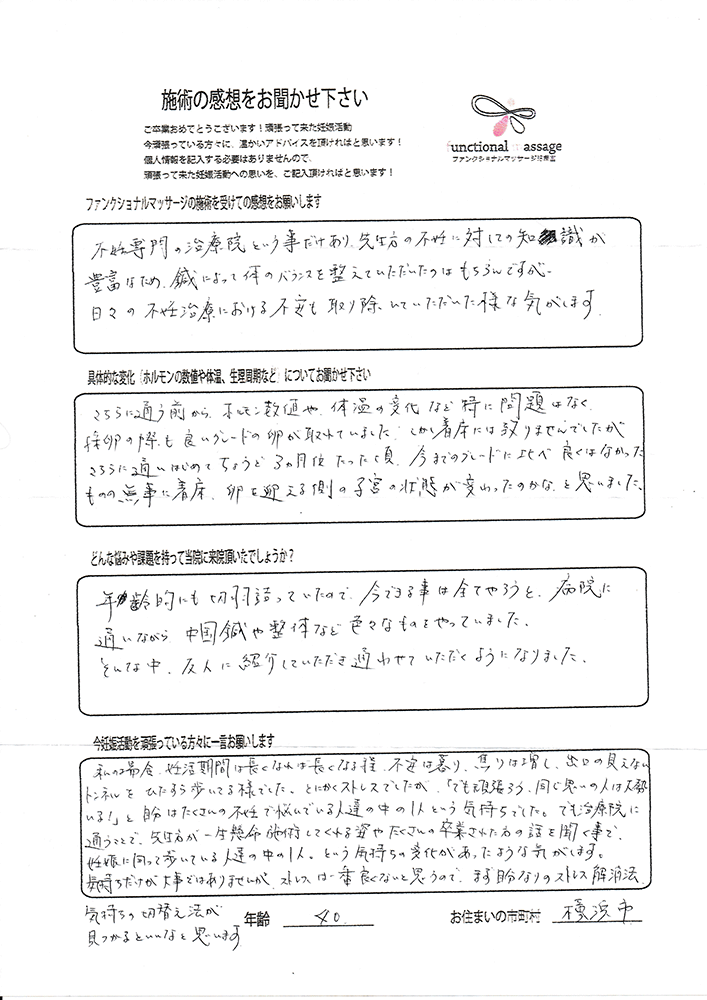 施術の感想をお聞かせ下さい
ご卒業おめでとうございます！頑張って来た妊娠活動
今頑張っている方々に、温かいアドバイスを頂ければと思います！
個人情報を記入する必要はありませんので、
頑張って来た妊娠活動への思いを、ご記入頂ければと思います！
functional massage
ファンクショナルマッサージ治療室
ファンクショナルマッサージの施術を受けての感想をお願いします
不妊専門の治療院という事だけあり、先生方の不妊に対しての知識が
豊富なため、鍼によって体のバランスを整えていただいたのはもちろんですが
日々の不妊治療における不安も取り除いていただいた様な気がします。
具体的な変化（ホルモンの数値や体温、生理周期など）についてお聞かせ下さい
こちらに通う前から、ホルモン数値や、体温の変化など特に問題はなく、
採卵の際も良いグレードの卵が取れていました。しかし着床には至りませんでしたが
こちらに通いはじめてちょうど3ヵ月位たった頃、今までのグレードに比べ良くはなかった
ものの無事に着床。卵を迎える側の子宮の状態が変わったのかな、と思いました。
どんな悩みや課題を持って当院に来院頂いたでしょうか？
年齢的にも切羽詰っていたので、今できる事は全てやろうと、病院に
通いながら、中国鍼や整体など色々なものをやっていました。
そんな中、友人に紹介していただき通わせていただくようになりました。
今妊娠活動を頑張っている方々に一言お願いします
私の場合、妊活期間は長くなれば長くなる程、不安は募り、焦りは増し、出口の見えない
トンネルをひたすら歩いてる様でした。とにかくストレスでしたが、「でも頑張ろう、同じ思いの人は大勢
いる！」と自分はたくさんの不妊で悩んでいる人達の中の1人という気持ちでした。でも治療院に
通うことで、先生方が一生懸命施術してくれる姿やたくさんの卒業された方の話を聞く事で、
妊娠に向って歩いている人達の中の1人。という気持ちの変化があったような気がします。
気持ちだけが大事ではありませんが、ストレスは一番良くないと思うので、まず自分なりのストレス解消法、
気持ちの切替え法が
見つかるといいなと思います
年齢 40
お住まいの市町村 横浜市